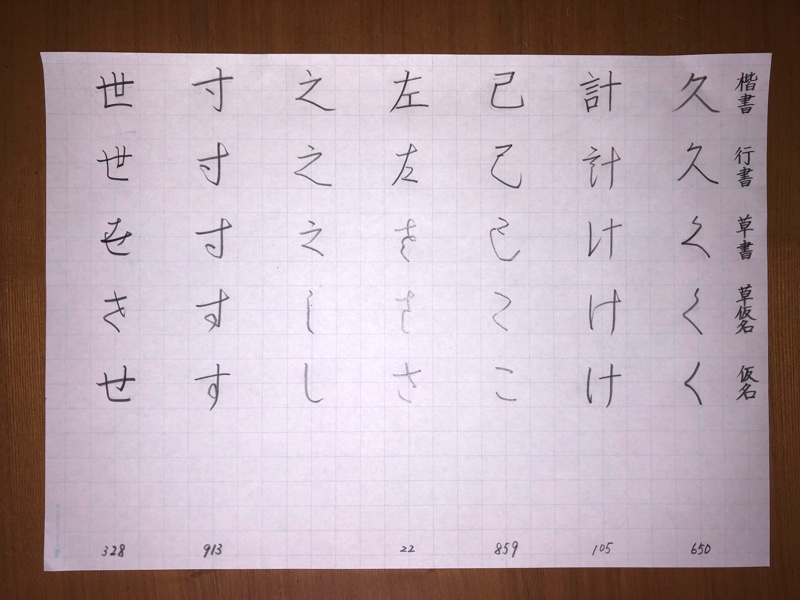 楷書 行書 草書 草仮名 仮名
久 久 久 く く 650
計 計 計 け け 105
己 己 己 こ こ 859
左 左 左 さ さ 22
之 之 之 し し
寸 寸 寸 す す 913
世 世 世 せ せ 328